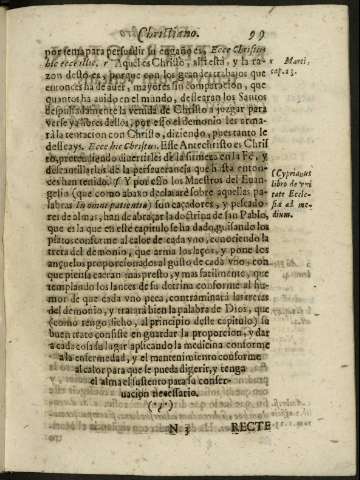 Christiano. 99
por tema para persuadir su engaño es, Ecce Christus
hic ecce illic. r Aqui es Christo, allí está, y la ra-
zon desto es, porque con los grandes trabajos que
entonces ha de auer, mayores sin comparacion, que
quantos ha auido en el mundo, dessearan los Santos
despulsadamente la venida de Christo a juzgar para
verse ya libres dellos, por esso el demonio les arma-
rá la tentacion con Christo, diziendo, pues tanto le
desseays. Ecce hic Christus. Este Antechristo es Christ
to, pretendiendo diuertirles de la firmeza en la Fé, y
descaminarlos de la perseuerancia que hasta enton-
ces han tenido. s Y por esso los Maestros del Euan-
gelio (que como abaxo declararé sobre aquellas pa-
labras In omni patientia) son caçadores, y pescado-
res de almas, han de abraçar la dotrina de san Pablo,
que es la que en este capitulo se ha dado, guisando los
platos conforme al calor de cada vno, conociendo la
treta del demonio, que arma los laços, y pone los
ançuelos proporcionados al gusto de cada vno, con
que piensa caeran mas presto, y mas facilmente, que
templando los lances de su dotrina conforme al hu-
mor de que cada vno peca, contraminará las tretas
del demonio, y tratará bien la palabra de Dios, que
(como tengo dicho, al principio deste capitulo) su
buen trato consiste en guardar la proporcion, y dar
a cada cosa su lugar aplicando la medicina conforme
a la enfermedad, y el mantenimiento conforme
al calor para que se pueda digerir, y tenga
el alma el sustento para su conser-
uacion necessario.
(.?.)
N 3 RECTE
r Marci,
cap. 13.
s Cyprianus
libro de vni
tate Eccle-
siæ ad me-
dium.